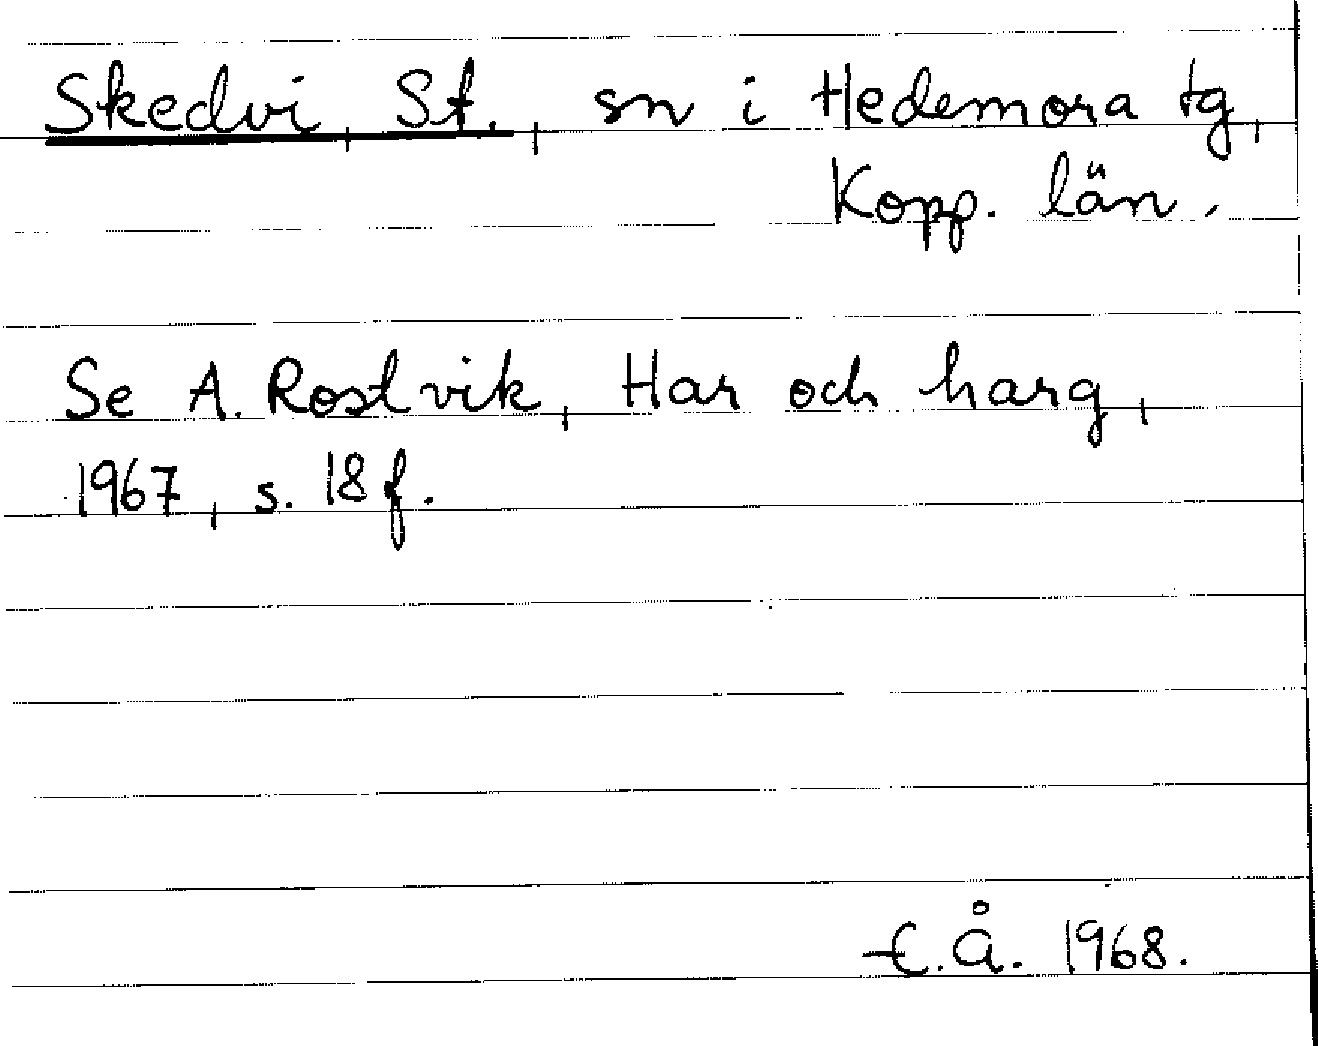 Skedvi, St., sn i Hedemora tg,
Kopp. län.
Se A. Rostvik, Har och harg,
1967, s. 18 f.
E. Å. 1968.